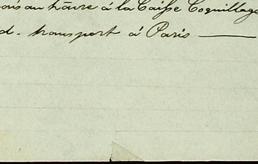 au hâvre à la Caisse Coquillage
d. transport à Paris —